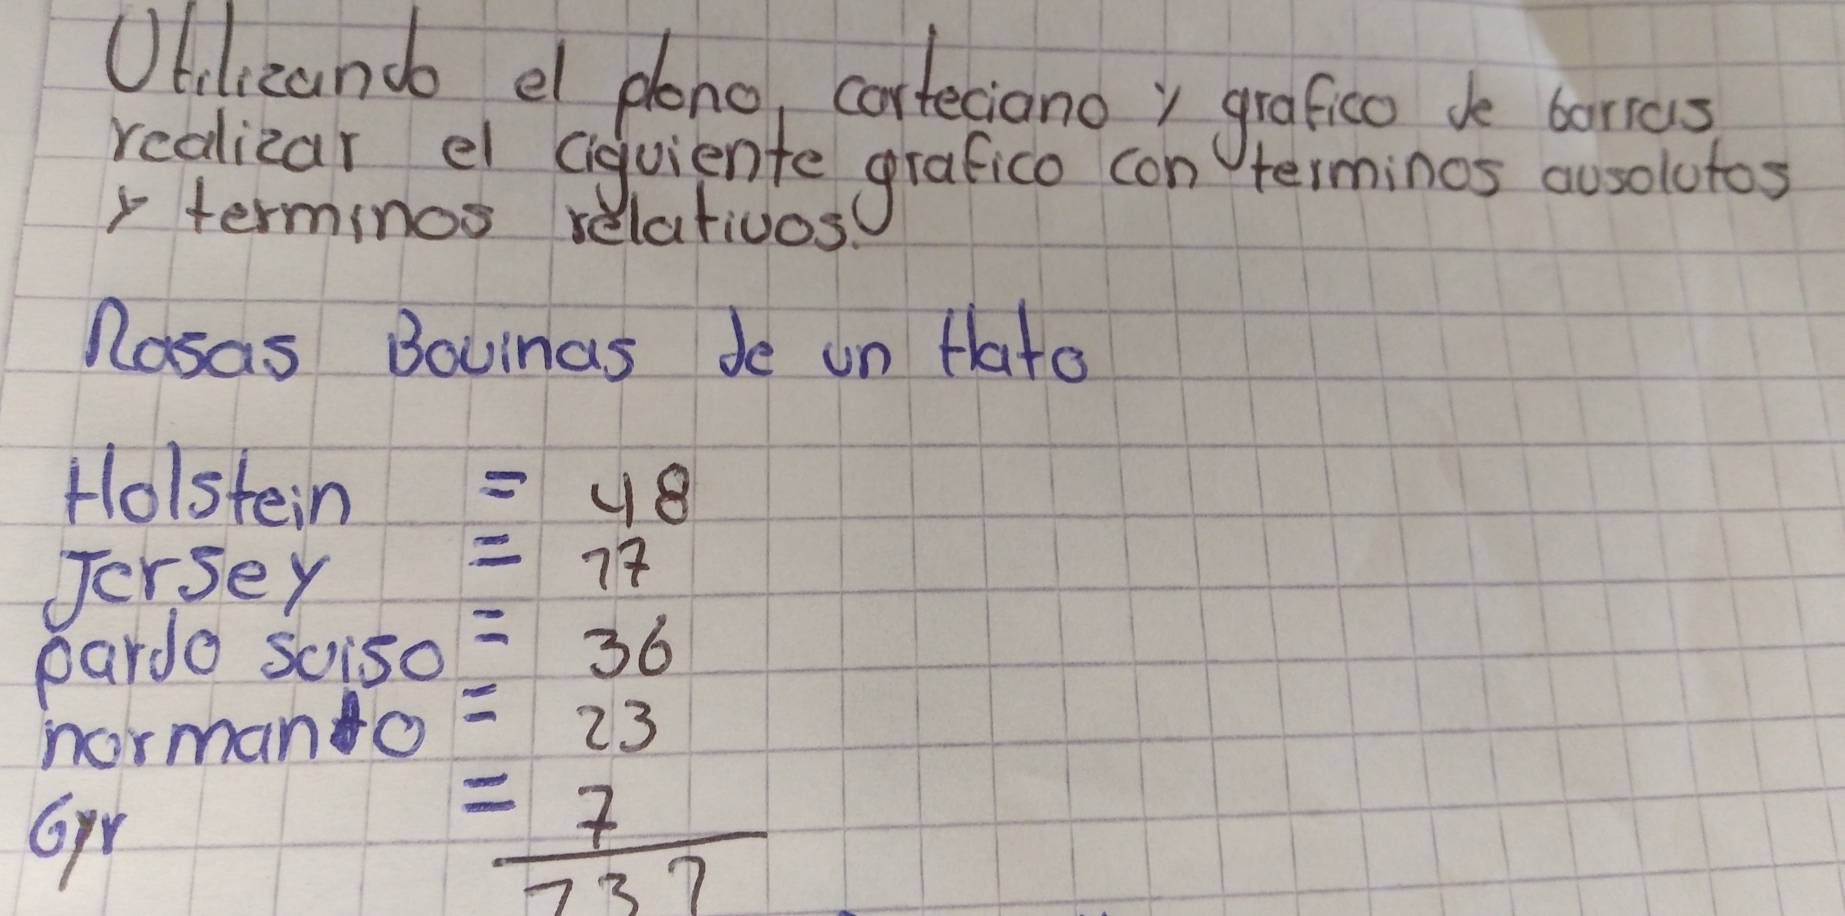 Utilizando el plano, carteciano y grafico de barras
realizar el ciguiente grafico con terminos ausolutos
y terminos relativos.
Rasas Bovinas de un Hato
Holstein = 48
Jersey = 17
pardo suiso = 36
normando = 23
Gyr = 7
131